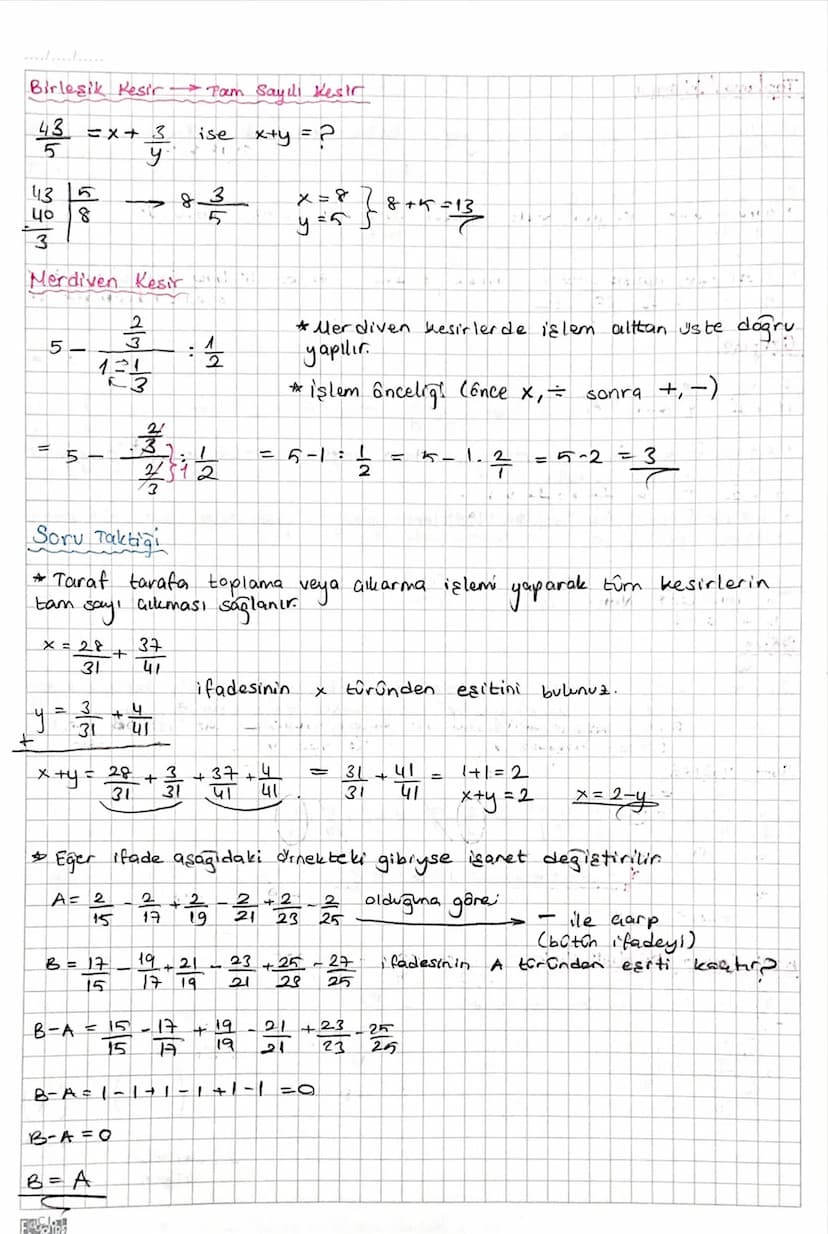 ..../..../....
Birleşik Kesir → Tam Sayılı Kesir
43/5 = x + 3/y ise x+y = ?
43 | 5 → 8 3/5 x = 8 } 8 + 5 = 13
- 40 | 8 y = 5
3
Merdiven Kesir
5 - (2/3)/(1 - 1/3) : 1/2
* Merdiven kesirlerde işlem alttan üste doğru
yapılır.
* İşlem önceliği (önce x, ÷ sonra +, -)
= 5 - (2/3)/(2/3) } 1 : 1/2 = 5 - 1 : 1/2 = 5 - 1 . 2/1 = 5 - 2 = 3
Soru Taktiği
* Taraf tarafa toplama veya çıkarma işlemi yaparak tüm kesirlerin
tam sayı çıkması sağlanır.
x = 28/31 + 37/41
ifadesinin x türünden eşitini bulunuz.
+ y = 3/31 + 4/41
x + y = 28/31 + 3/31 + 37/41 + 4/41 . = 31/31 + 41/41 = 1+1 = 2
x+y = 2 x = 2-y
* Eğer ifade aşağıdaki örnekteki gibiyse işaret değiştirilir
A = 2/15 - 2/17 + 2/19 - 2/21 + 2/23 - 2/25 olduğuna göre; → - ile çarp
(bütün ifadeyi)
B = 17/15 - 19/17 + 21/19 - 23/21 + 25/23 - 27/25 ifadesinin A türünden eşiti kaçtır?
B-A = 15/15 - 17/17 + 19/19 - 21/21 + 23/23 - 25/25
B-A = 1 - 1 + 1 - 1 + 1 - 1 = 0
B-A = 0
B = A